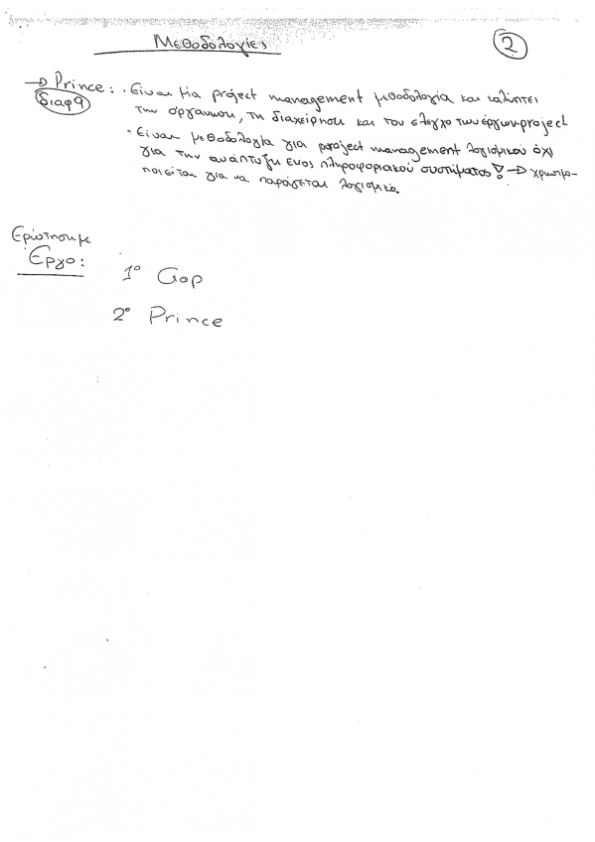 Μεθοδολογίες
2
→ Prince: · Είναι μία project management μεθοδολογία και καλύπτει
διαφ 9
την οργάνωση, τη διαχείρηση και τον έλεγχο των έργων-project
· Είναι μεθοδολογία για project management λογισμικού όχι
για την ανάπτυξη ενος πληροφοριακού συστήματος! → χρησιμο-
ποιείται για να παράγεται λογισμικό.
Ερώτηση με
Έργο:
1º Gop
2º Prince